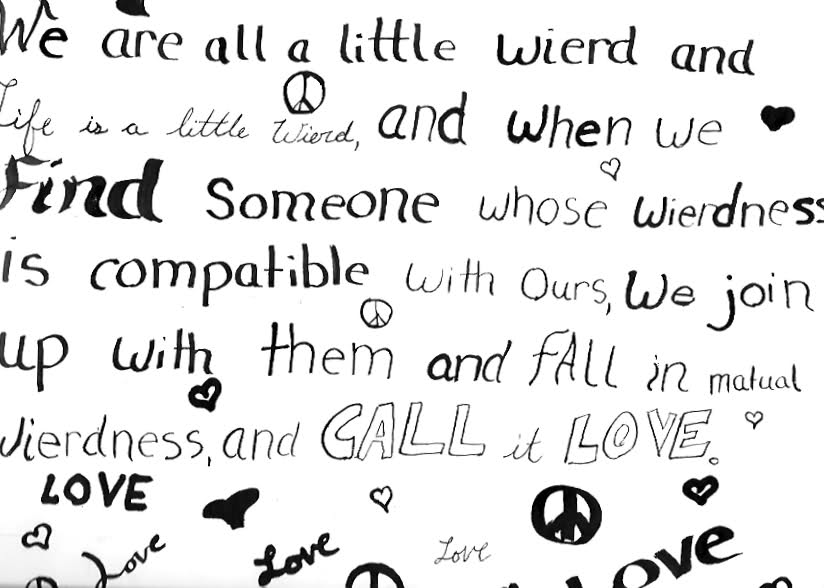 We are all a little wierd and
Life is a little wierd, and when we
Find someone whose wierdness
is compatible with ours, We join
up with them and fAll in matual
wierdness, and CALL it LOVE.
LOVE
Love Love Love Love